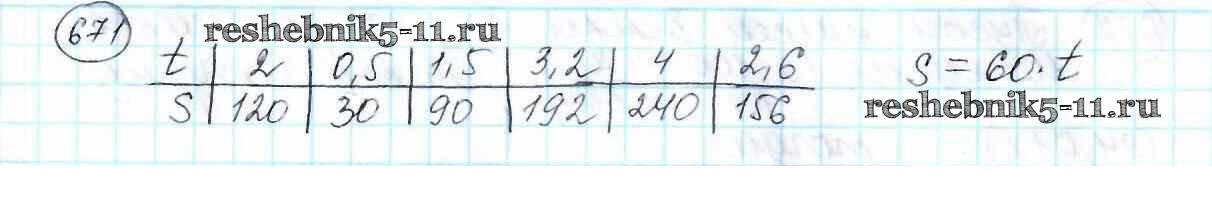 671 reshebnik5-11.ru
t 2 0,5 1,5 3,2 4 2,6 s = 60·t
S 120 30 90 192 240 156 reshebnik5-11.ru